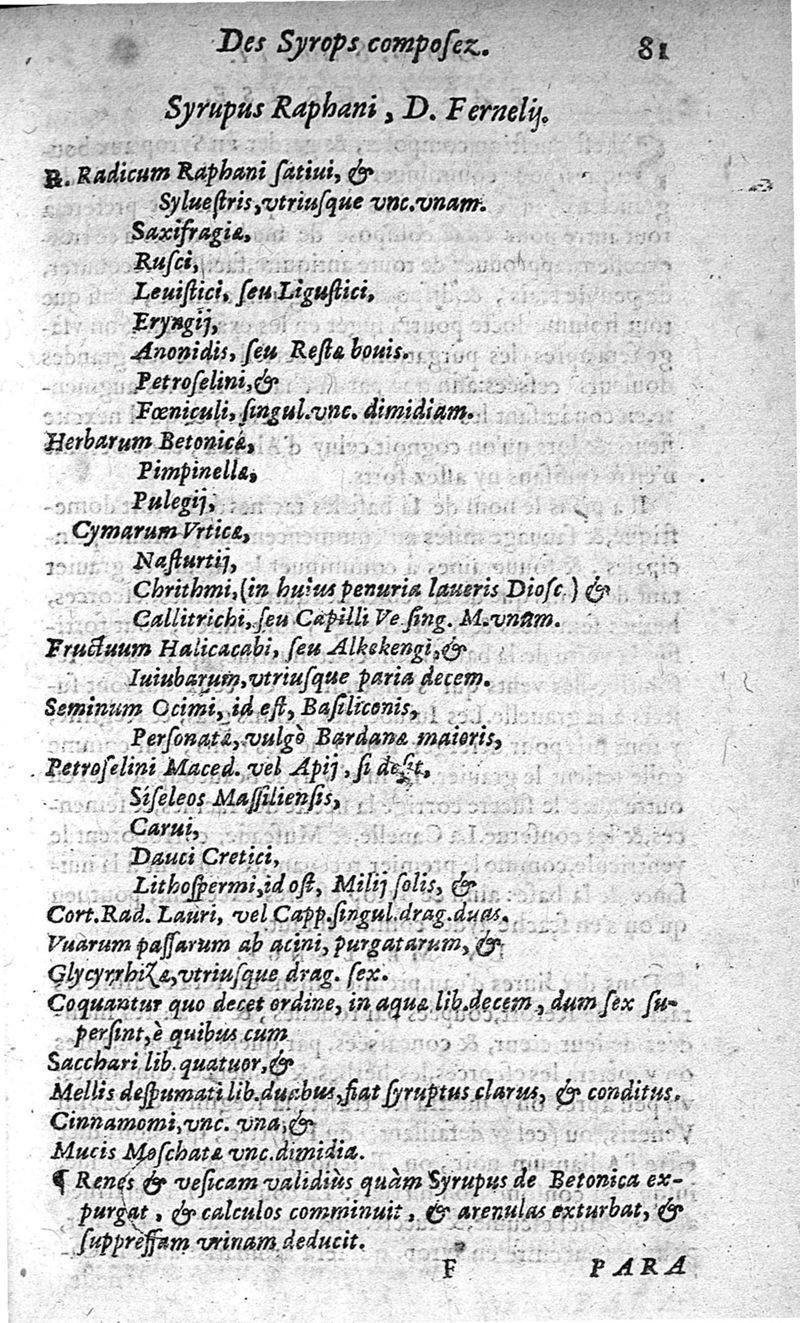 Des Syrops compoſez. 81
Syrupus Raphani, D. Fernelij.
℞. Radicum Raphani ſatiui, &
Sylueſtris, vtriuſque vnc. vnam.
Saxifragiæ,
Ruſci,
Leuiſtici, ſeu Liguſtici,
Eryngij,
Anonidis, ſeu Reſtæ bouis,
Petroſelini, &
Fœniculi, ſingul. vnc. dimidiam.
Herbarum Betonicæ,
Pimpinellæ,
Pulegij,
Cymarum Vrticæ,
Naſturtij,
Chrithmi, (in huius penuria laueris Dioſc.) &
Callitrichi, ſeu Capilli Ve. ſing. M. vnam.
Fructuum Halicacabi, ſeu Alkekengi, &
Iuiubarum, vtriuſque paria decem.
Seminum Ocimi, id eſt, Baſiliconis,
Perſonatæ, vulgò Bardanæ maioris,
Petroſelini Maced. vel Apij, ſi deſit,
Siſeleos Maſſilienſis,
Carui,
Dauci Cretici,
Lithoſpermi, id oſt, Milij ſolis, &
Cort. Rad. Lauri, vel Capp. ſingul. drag. duas.
Vuarum paſſarum ab acini, purgatarum, &
Glycyrrhizæ, vtriuſque drag. ſex.
Coquantur quo decet ordine, in aquæ lib. decem, dum ſex ſu-
perſint, è quibus cum
Sacchari lib. quatuor, &
Mellis deſpumati lib. duabus, fiat ſyruptus clarus, & conditus.
Cinnamomi, vnc. vna, &
Mucis Moſchatæ vnc. dimidia.
¶ Renes & veſicam validiùs quàm Syrupus de Betonica ex-
purgat, & calculos comminuit, & arenulas exturbat, &
ſuppreſſam vrinam deducit.
F PARA